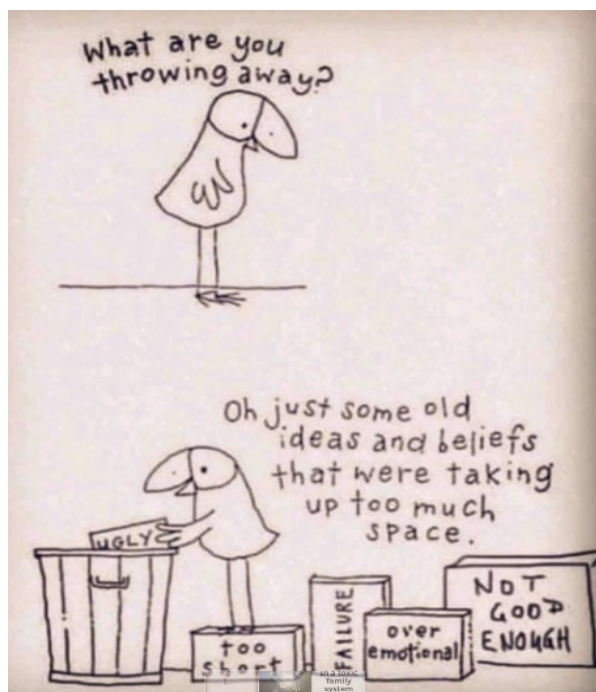 What are you
throwing away?
Oh just some old
ideas and beliefs
that were taking
up too much
space.
UGLY
too
short
FAILURE
over
emotional
NOT
GOOD
ENOUGH
in a toxic
family
system